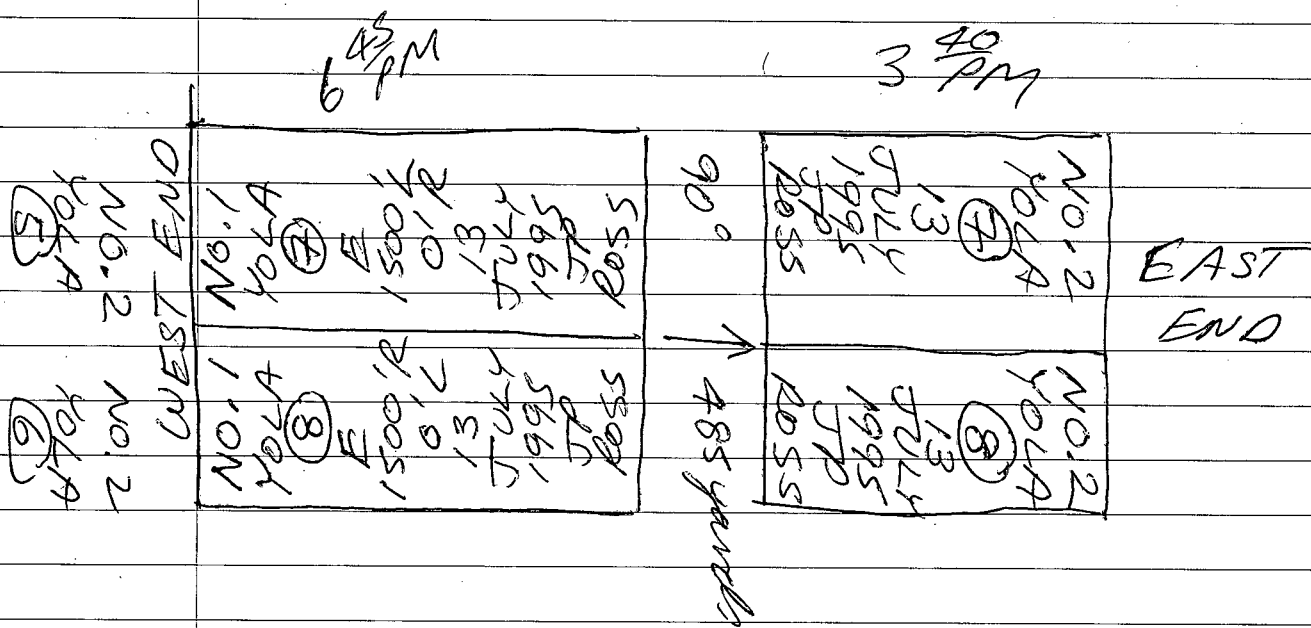 6 45/PM
3 40/PM
WEST END
NO. 2
YOLA
5
NO. 2
YOLA
6
NO. 1
YOLA
7
E
1500'L
0'R
13
JULY
1995
JP
ROSS
NO. 1
YOLA
8
E
1500'R
0'L
13
JULY
1995
JP
ROSS
90°
485 yards
NO. 2
YOLA
7
13
JULY
1995
JP
ROSS
NO. 2
YOLA
8
13
JULY
1995
JP
ROSS
EAST
END